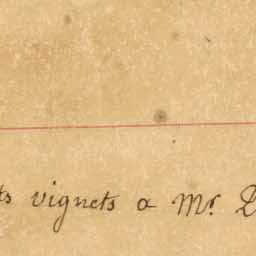 vignets a Mr.